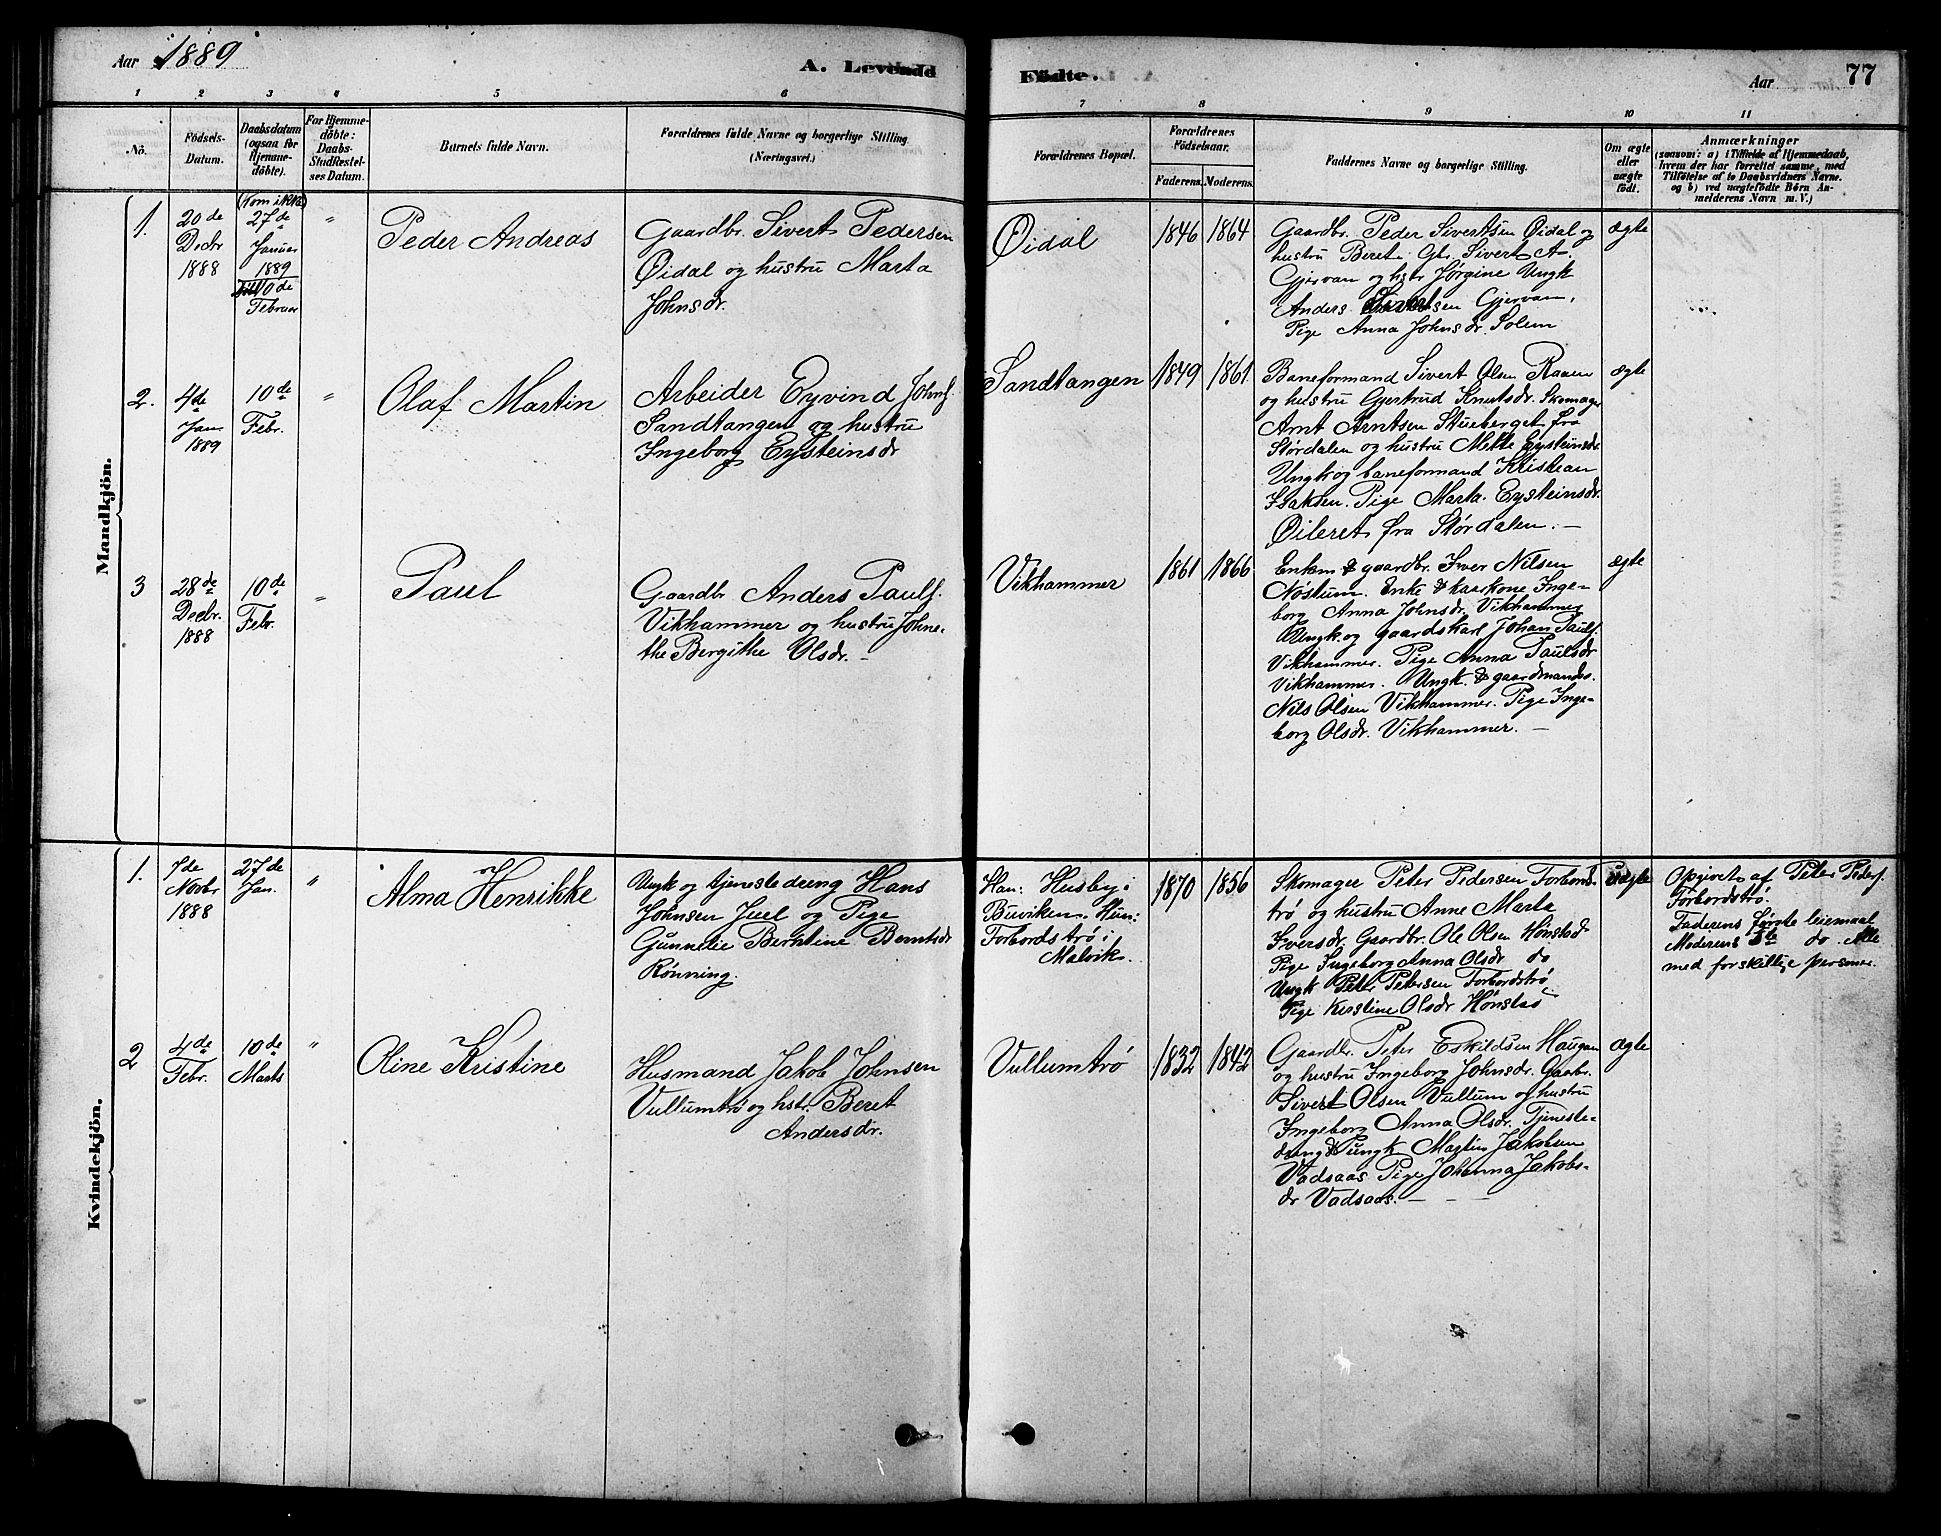 Aar 1889
A. Levende
Fødte.
Aar
77
1 2 3 4 5 6 7 8 9 10 11
No.
Födsels-
Datum.
Daabsdatum
(ogsaa for
Hjemme-
döbte).
For Hjemme-
döbte:
Daabs-
Stadfæstel-
ses Datum.
Barnets fulde Navn.
Forældrenes fulde Navne og borgerlige Stilling
(Næringsvei.)
Forældrenes Bopæl.
Forældrenes
Födselsaar.
Faderens.
Moderens.
Faddernes Navne og borgerlige Stilling.
Om ægte
eller
uægte
födt.
Anmærkninger
(saasom: a) i Tilfælde af Hjemmedaab,
hvem der har forrettet samme, med
Tilföielse af to Daabsvidners Navne.
og b) ved uægtefödte Börn An-
melderens Navn m. V.)
Mandkjön.
1.
20de
Decbr
1888
(Kom ikke)
27de
Januar
1889
10de
Februar
"
Peder Andreas
Gaardbr. Sivert Pedersen
Øidal og hustru Marta
Johnsdr.
Øidal
1846
1864
Gaardbr. Peder Sivertsen Øidal og
hustru Beret. Gbr. Sivert A.
Gjervan og hstr Jørgine Ungk
Anders Sivertsen Gjervan,
Pige Anna Johnsdr. Solem
ægte
2.
4de
Jan.
1889
10de
Febr.
"
Olaf Martin
Arbeider Eyvind Johnf.
Sandtangen og hustru
Ingeborg Eysteinsdr
Sandtangen
1849
1861
Baneformand Sivert Olsen Raaen
og hustru Gjertrud Knutsdr. Skomager
Arnt Arntsen Stueberget fra
Størdalen og hustru Mette Eysteinsdr
Ungk og baneformand Kristian
Isaksen. Pige Marta Eysteinsdr.
Øileret fra Størdalen. —
ægte
3
28de
Decbr.
1888
10de
Febr.
"
Paul
Gaardbr Anders Paulf.
Vikhammer og hustru Johne-
the Bergithe Olsdr. —
Vikhammer
1861
1866
Enkem & gaardbr. Iver Nilsen
Nøstum. Enke & kaarkone Inge-
borg Anna Johnsdr. Vikhammer
Ungk og gaardskarl Johan Paulf.
Vikhammer. Pige Anna Paulsdr
Vikhammer. Ungk. & gaardmandss.
Nils Olsen Vikhammer. Pige Inge-
borg Olsdr. Vikhammer. —
ægte
Kvindekjön.
1.
7de
Novbr
1888
27de
Jan.
"
Alma Henrikke
Ungk og tjenestedreng Hans
Johnsen Juel og Pige
Gunnelie Berntine Berntsdr
Rönning.
Han: Husby i
Buviken. Hun:
Forbordstrø i
Malvik.
1870
1856
Skomager Peter Pedersen Forbords-
trø og hustru Anne Marta
Iversdr. Gaardbr. Ole Olsen Hønstad
Pige Ingeborg Anna Olsdr do
Ungk Peter Petersen Forbordstrø
Pige Kirstine Olsdr Hønstad
Uægte
Opgivet af Peter Pedersf.
Forbordstrø.
Faderens første leiemaal
Moderens do. Alle
med forskellige personer.
2
4de
Febr.
10de
Marts
"
Oline Kristine
Husmand Jakob Johnsen
Vullumtrø og hstr. Beret
Andersdr.
Vullumtrø
1832
1842
Gaardbr. Peter Eskildsen Haugan
og hustru Ingeborg Johnsdr. Gaarbr.
Sivert Olsen Vullum og hustru
Ingeborg Anna Olsdr. Tjeneste-
dreng & ungk Martin Jakobsen
Vadsaas Pige Johanna Jakobs-
dr Vadsaas. — — —
ægte